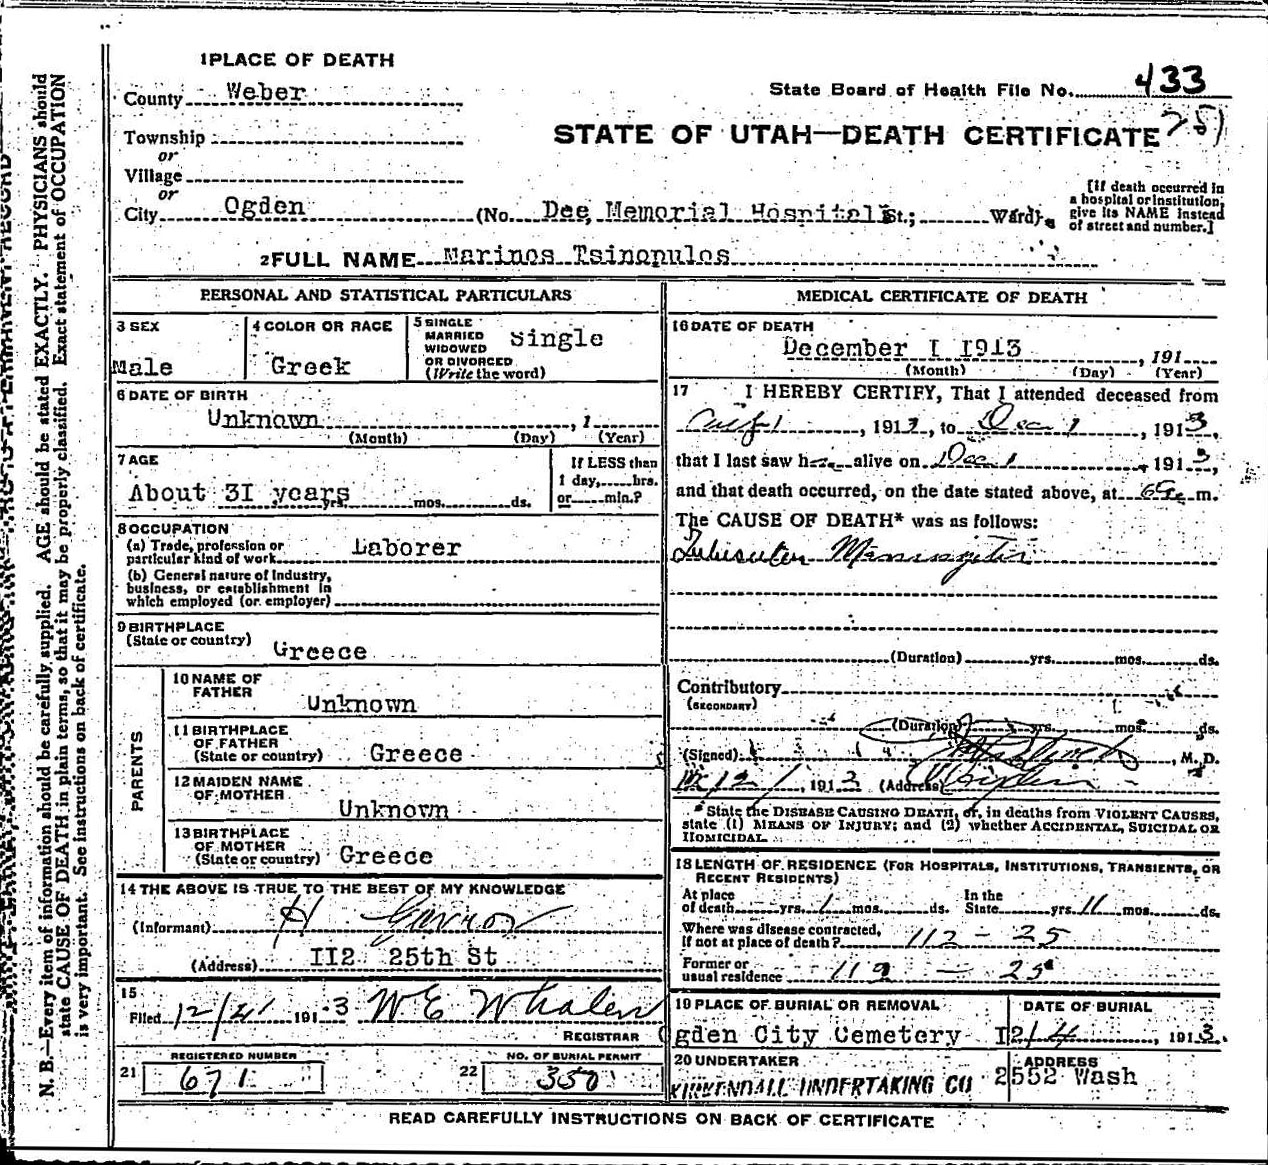 1 PLACE OF DEATH
County Weber
State Board of Health File No. 433
Township
or
Village
or
STATE OF UTAH—DEATH CERTIFICATE 251
City Ogden (No. Dee Memorial Hospital St.; Ward)
[If death occurred in
a hospital or institution,
give its NAME instead
of street and number.]
2 FULL NAME Marinos Tsinopulos
PERSONAL AND STATISTICAL PARTICULARS
3 SEX
Male
4 COLOR OR RACE
Greek
5 SINGLE
MARRIED
WIDOWED
OR DIVORCED
(Write the word)
Single
6 DATE OF BIRTH
Unknown , 1
(Month) (Day) (Year)
7 AGE
About 3I years yrs. mos. ds.
If LESS than
1 day, hrs.
or min.?
8 OCCUPATION
(a) Trade, profession or
particular kind of work Laborer
(b) General nature of industry,
business, or establishment in
which employed (or employer)
9 BIRTHPLACE
(State or country) Greece
PARENTS
10 NAME OF
FATHER
Unknown
11 BIRTHPLACE
OF FATHER
(State or country) Greece
12 MAIDEN NAME
OF MOTHER
Unknown
13 BIRTHPLACE
OF MOTHER
(State or country) Greece
14 THE ABOVE IS TRUE TO THE BEST OF MY KNOWLEDGE
(Informant) H
(Address) II2 25th St
15
Filed 12/4 191 3 W E Whalen
REGISTRAR
REGISTERED NUMBER
21 671
NO. OF BURIAL PERMIT
22 350
MEDICAL CERTIFICATE OF DEATH
16 DATE OF DEATH
December I I9I3 , 191
(Month) (Day) (Year)
17 I HEREBY CERTIFY, That I attended deceased from
1 , 191 3, to Dec 1 , 191 3,
that I last saw h alive on Dec 1 , 191 3,
and that death occurred, on the date stated above, at 6 m.
The CAUSE OF DEATH* was as follows:
Tubercular Meningitis
(Duration) yrs. mos. ds.
Contributory
(SECONDARY)
(Duration) yrs. mos. ds.
(Signed) , M. D.
, 191 3 (Address) Ogden
* State the DISEASE CAUSING DEATH, or, in deaths from VIOLENT CAUSES,
state (1) MEANS OF INJURY; and (2) whether ACCIDENTAL, SUICIDAL OR
HOMICIDAL.
18 LENGTH OF RESIDENCE (FOR HOSPITALS, INSTITUTIONS, TRANSIENTS, OR
RECENT RESIDENTS)
At place
of death yrs. 1 mos. ds.
In the
State yrs. 11 mos. ds.
Where was disease contracted,
if not at place of death? 112 - 25
Former or
usual residence 112 - 25
19 PLACE OF BURIAL OR REMOVAL
Ogden City Cemetery
DATE OF BURIAL
I2/4 , 191 3.
20 UNDERTAKER
KIRKENDALL UNDERTAKING CO
ADDRESS
2552 Wash
READ CAREFULLY INSTRUCTIONS ON BACK OF CERTIFICATE
N. B.—Every item of information should be carefully supplied. AGE should be stated EXACTLY. PHYSICIANS should
state CAUSE OF DEATH in plain terms, so that it may be properly classified. Exact statement of OCCUPATION
is very important. See instructions on back of certificate.